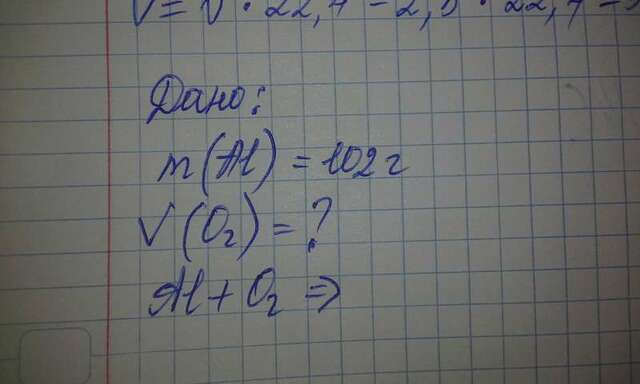 V = V · 22,4 - 2,5 · 22,4 =
Дано:
m(Al) = 102 г
V(O₂) = ?
Al + O₂ ⇒